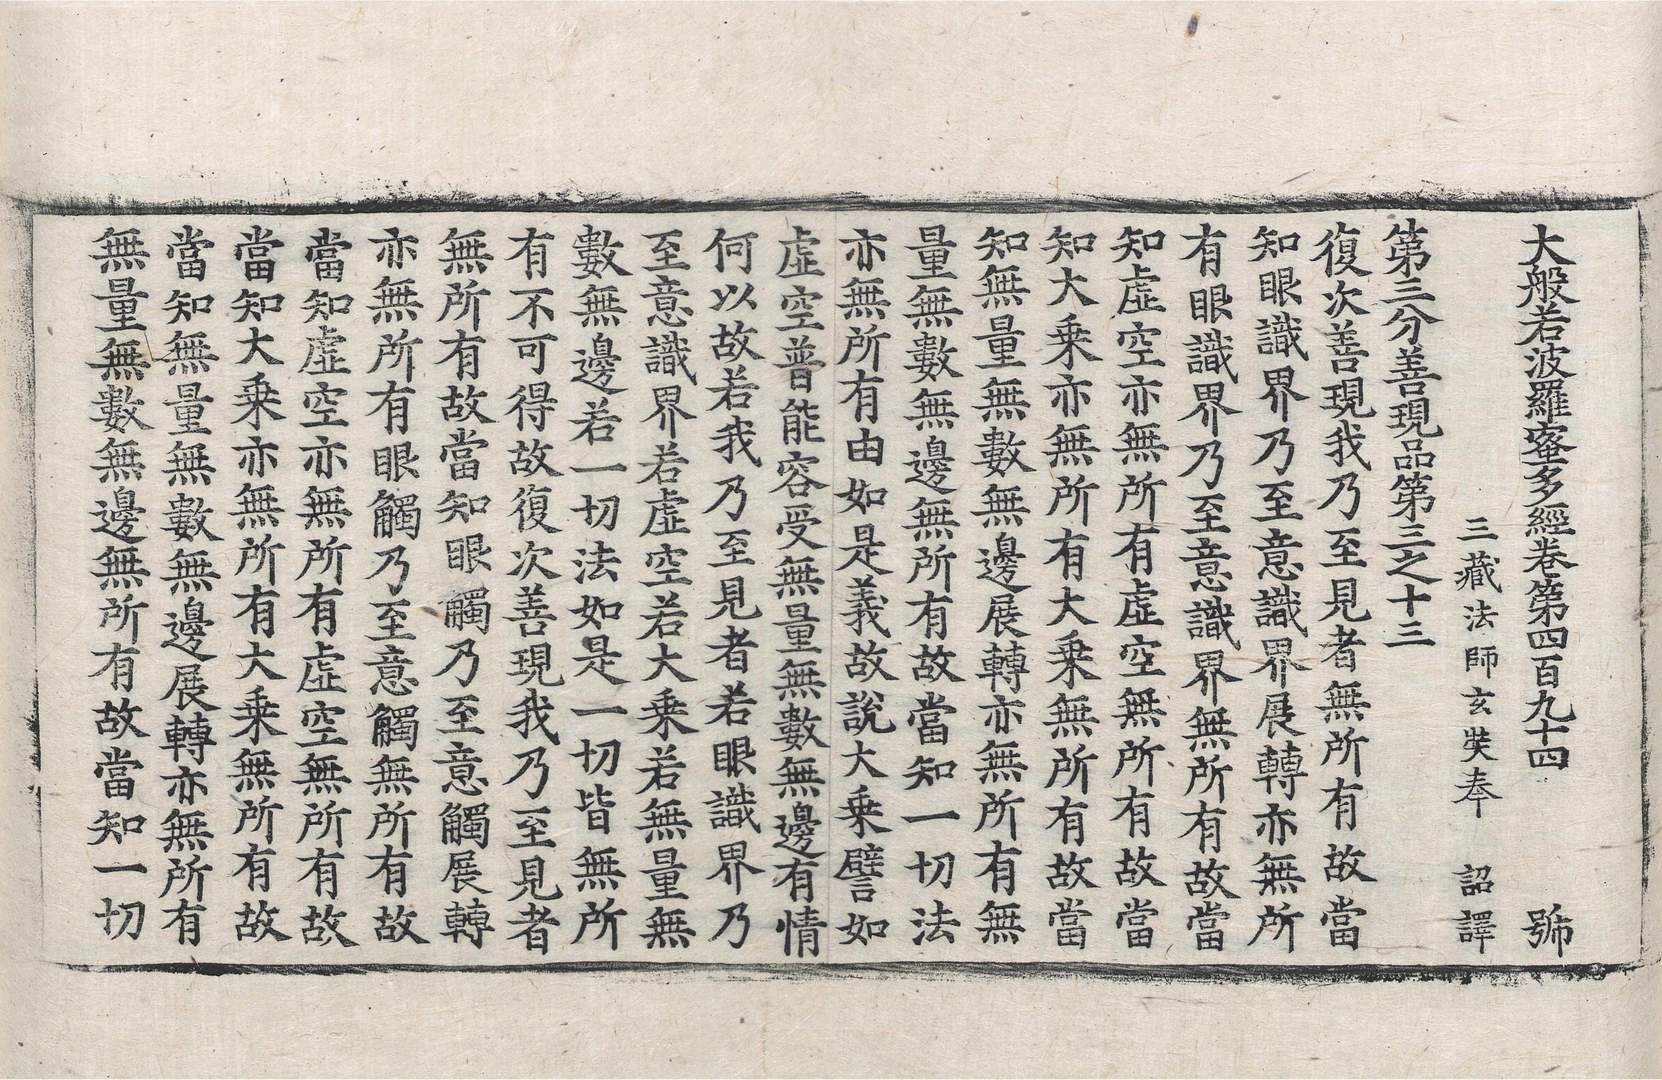 大般若波羅蜜多經卷第四百九十四 號
三藏法師玄奘奉 詔譯
第三分善現品第三之十三
復次善現我乃至見者無所有故當
知眼識界乃至意識界展轉亦無所
有眼識界乃至意識界無所有故當
知虛空亦無所有虛空無所有故當
知大乘亦無所有大乘無所有故當
知無量無數無邊展轉亦無所有無
量無數無邊無所有故當知一切法
亦無所有由如是義故說大乘譬如
虛空普能容受無量無數無邊有情
何以故若我乃至見者若眼識界乃
至意識界若虛空若大乘若無量無
數無邊若一切法如是一切皆無所
有不可得故復次善現我乃至見者
無所有故當知眼觸乃至意觸展轉
亦無所有眼觸乃至意觸無所有故
當知虛空亦無所有虛空無所有故
當知大乘亦無所有大乘無所有故
當知無量無數無邊展轉亦無所有
無量無數無邊無所有故當知一切